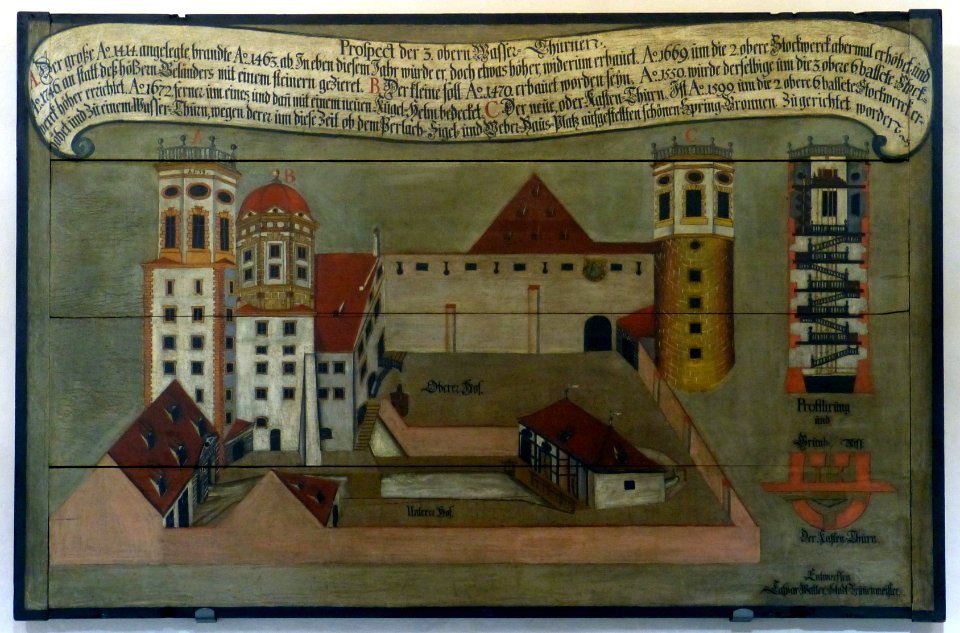 Prospect der 3. obern Wasser-Thürner.
A. Der große Aº. 1414. angelegte, brandte Aº. 1463. ab. In eben diesem Jahr würde er, doch etwas höher, widerum erbauet. Aº. 1669. üm die 2. obere Stockwerck abermal erhöhet, und
Aº. 1746. an statt deß hölßern Geländers mit einem steinern gezieret. B. Der kleine soll Aº. 1470. erbauet worden seÿn. Aº. 1550. würde derselbige üm die 3. obere 6 ballete Stock-
werck höher errichtet. Aº. 1672. ferner üm eines und dañ mit einem neüen Kügel-Helm bedecket. C. Der neüe, oder Kasten-Thürn. Ist Aº. 1599. üm die 2. obere 6 ballete Stockwerck er-
höhet und zü einem Wasser-Thürn, wegen derer üm diese Zeit ob dem Perlach-Sigel- und Weber-Haüs-Platz aüfgestellten schönen Spring-Bronnen Zügerichtet worden.
A
B
C
A 1 7
Oberer Hof.
Unterer Hof.
Profilirüng
und
Gründ-Riss.
Der Kasten-Thürn.
Entworffen
Caspar Walter, Stadt Brünenmeister.